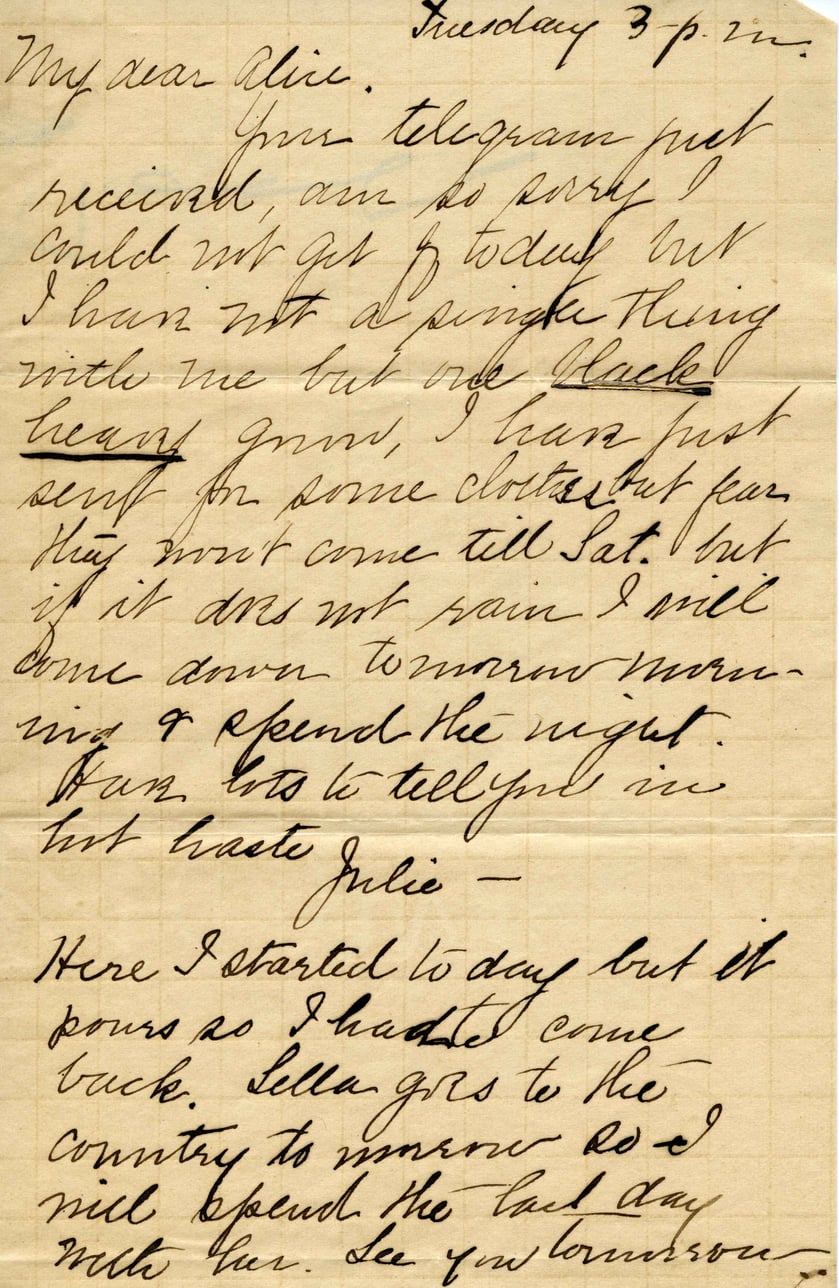 Tuesday 3-p.m.
My dear Alice.
Your telegram just
received, am so sorry I
could not get off today but
I have not a single thing
with me but one black
heavy gown, I have just
sent for some clothes but fear
they won't come till Sat. but
if it does not rain I will
come down tomorrow morn-
ing & spend the night.
Have lots to tell you in
hot haste
Julie —
Here I started to day but it
pours so I had to come
back. Lella goes to the
country to morrow so I
will spend the last day
with her. See you tomorrow